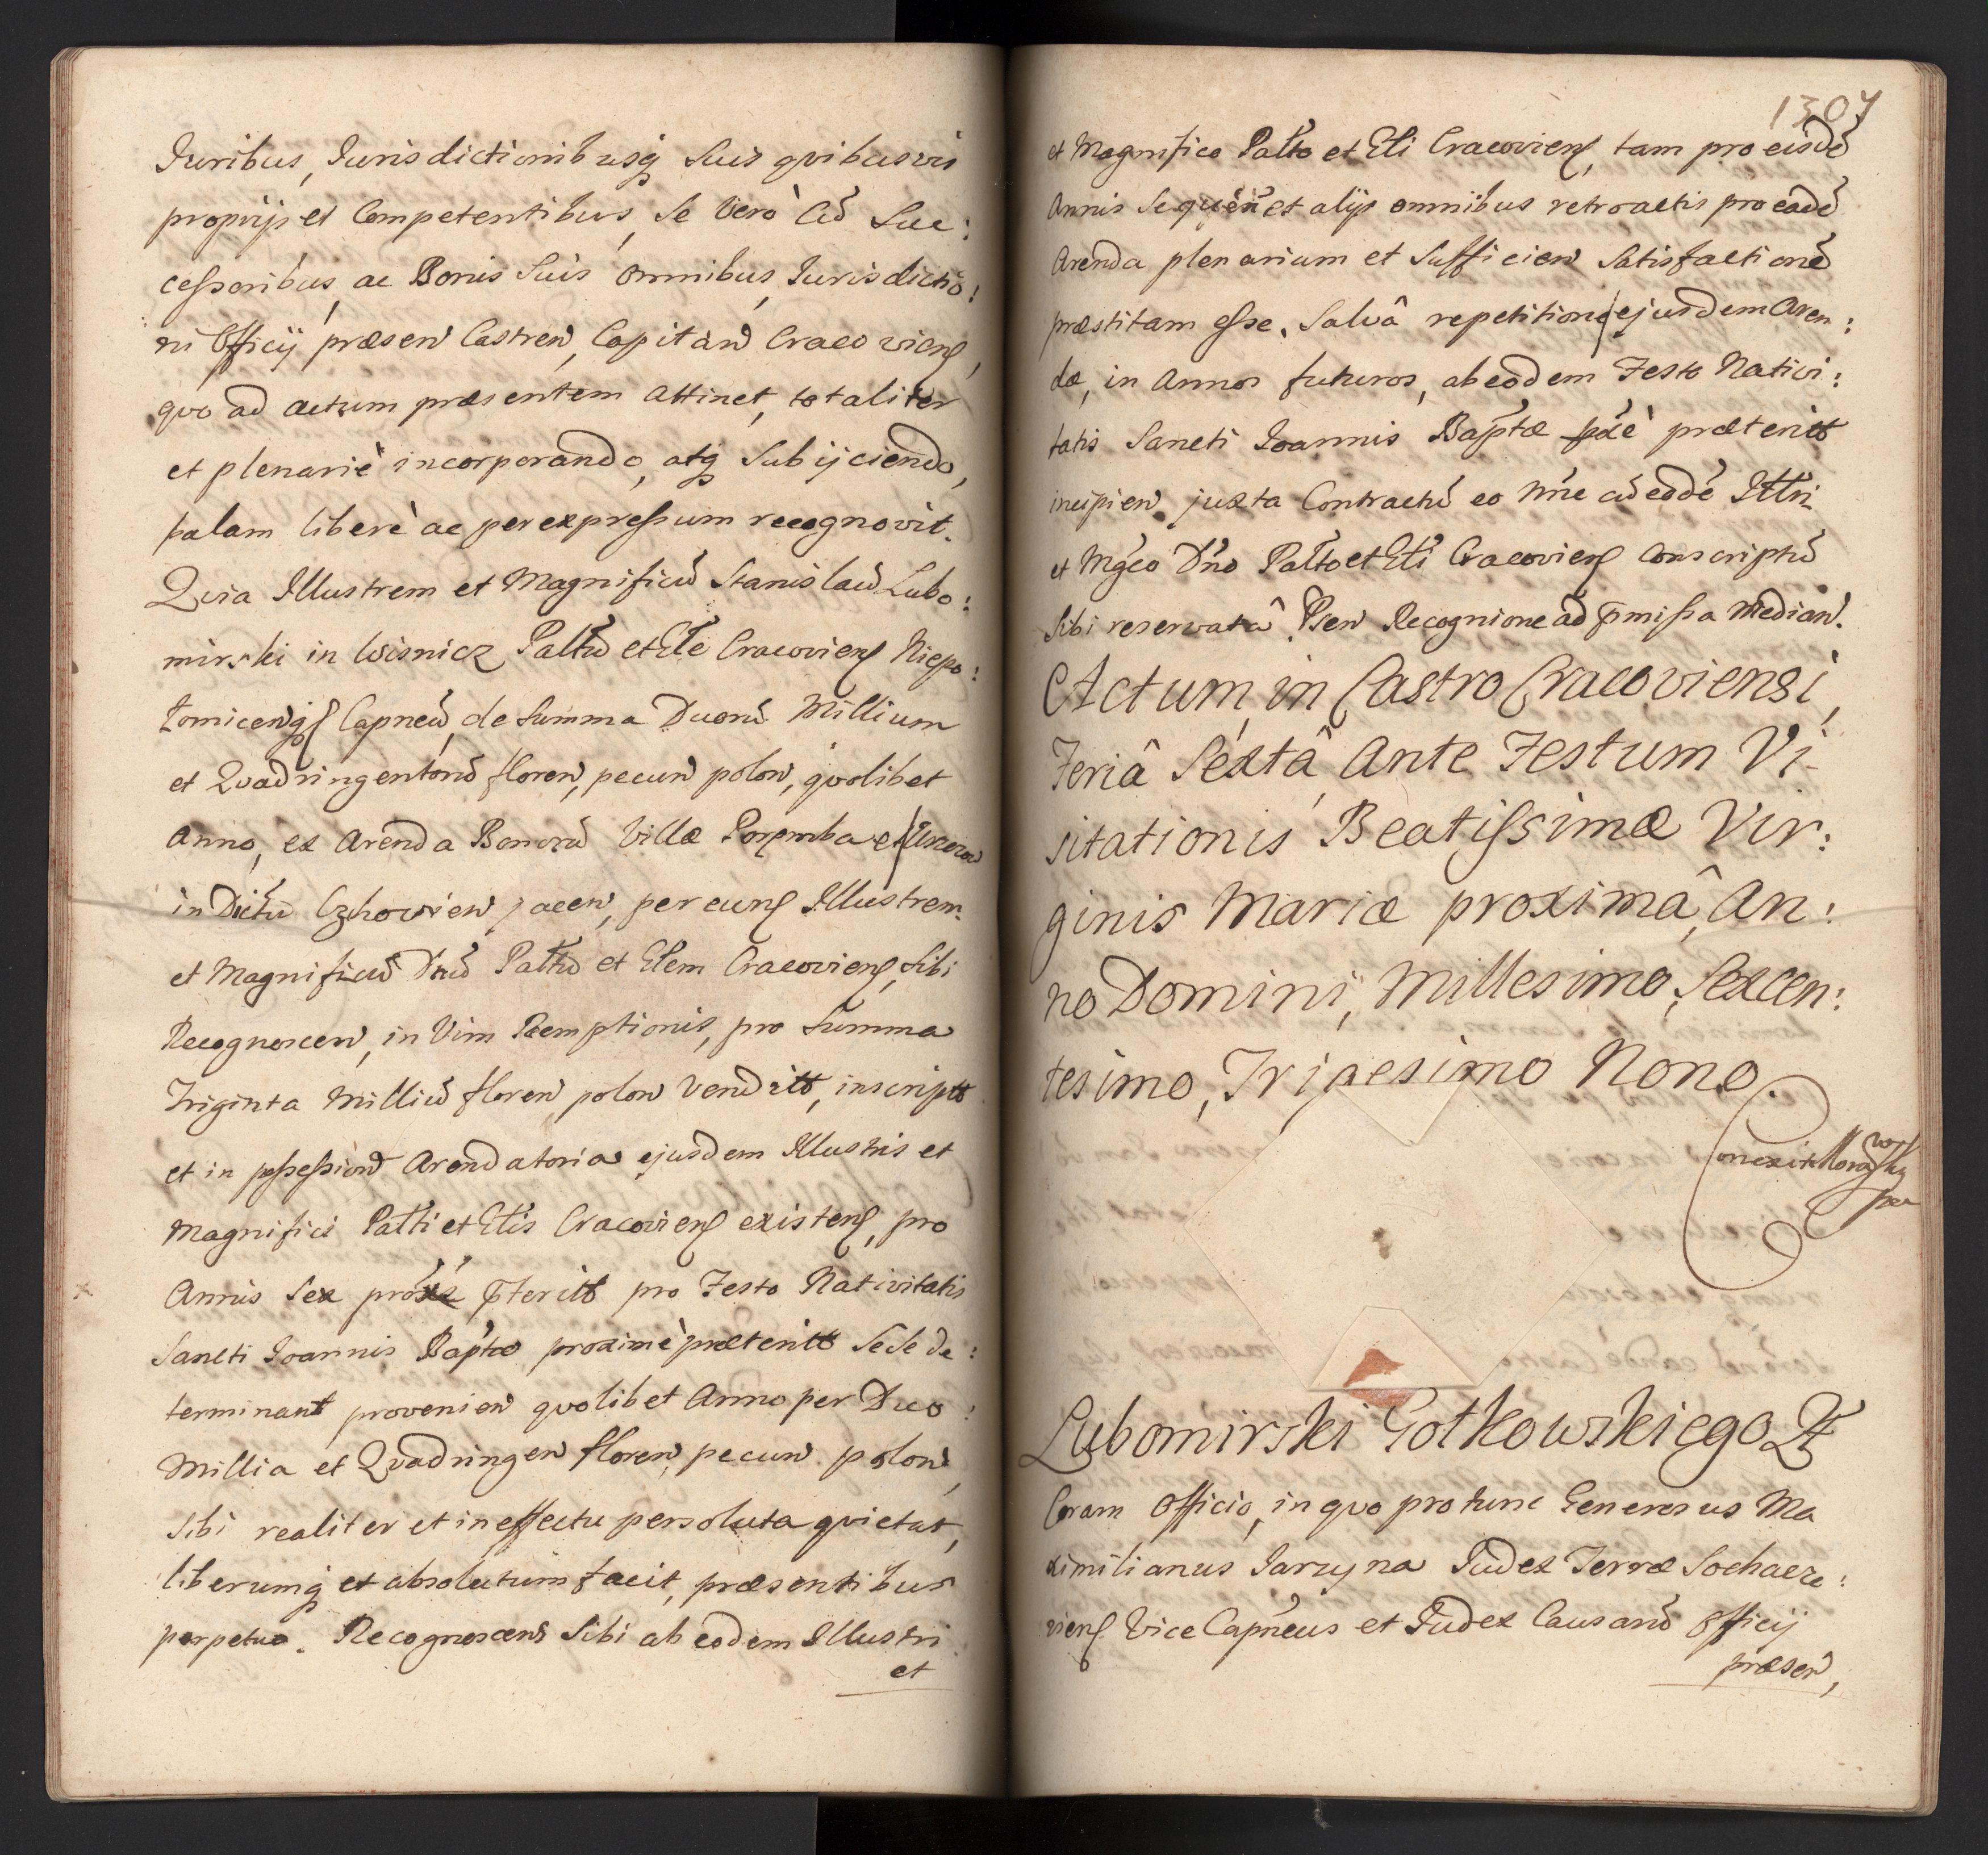 Iuribus, Iurisdictionibusq Suis qvibusvis
proprijs et Competentibus, Se Verò Cū Suc:
cessoribus, ac Bonis Suis omnibus, Iurisdictio:
ni Officij præsen Castren, Capitan Cracoviens,
qvo ad actum præsentem attinet, totaliter
et plenariè incorporando, atq Subijciendo,
palam liberè ac per expressum recognovit.
Qvia Illustrem et Magnificū Stanislaū Lubo:
mirski in Wisnicz Paltū et Gle Cracoviens Niepo:
lomicenqs Capneū, de Summa Duorū Millium
et Qvadringentorū floren, pecun polon, qvolibet
Anno, ex Arenda Bonorū Villæ Poremba et
in Dictū Czhovien jacen, per eund Illustrem
et Magnificū Dnū Paltū et Glem Cracoviens, Sibi
Recognoscen, in Vim Reemptionis, pro Summa
Triginta Milliū floren polon Vendit, inscript
et in possession Arendatoria ejusdem Illustris et
Magnifici Palti et Glis Cracoviens existens, pro
Annis Sex prox pterit pro Festo Nativitatis
Sancti Ioannis Baptæ proximè præterit Sese de:
terminant provenien qvolibet Anno per Duo:
Millia et Qvadringen floren pecun polon,
Sibi realiter et in effectu persoluta qvietat,
liberumq et absolutum facit, præsentibus
perpetuo. Recognoscens Sibi ab eodem Illustri
et
1307
et Magnifico Palto et Gli Cracoviens, tam pro eisdē
Annis Sequen et alijs omnibus retroactis pro eadē
Arenda plenarium et Sufficien Satisfactionē
præstitam esse, Salvâ repetitione ejusdem Aren:
dæ, in Annos futuros, ab eodem Festo Nativi:
tatis Sancti Ioannis Baptæ pxè præterit
incipien juxta Contractū eo nne cū eodē Illri
et Mgco Dno Palto et Gli Cracoviens Conscriptū
Sibi reservatâ. Psen Recognione ad pmissa median.
Actum in Castro Cracoviensi,
Feriâ Sextâ Ante Festum Vi-
sitationis Beatissimæ Vir:
ginis Mariæ proximâ, An:
no Domini, Millesimo, Sexcen:
tesimo, Trigesimo Nono.
Lubomirski Gotkowskiego Qt
Coram Officio, in qvo pro tunc Generosus Ma
ximilianus Jarzyna Judex Terræ Sochacze:
viens Vice Capneus et Judex Causarū Officij
præsen,